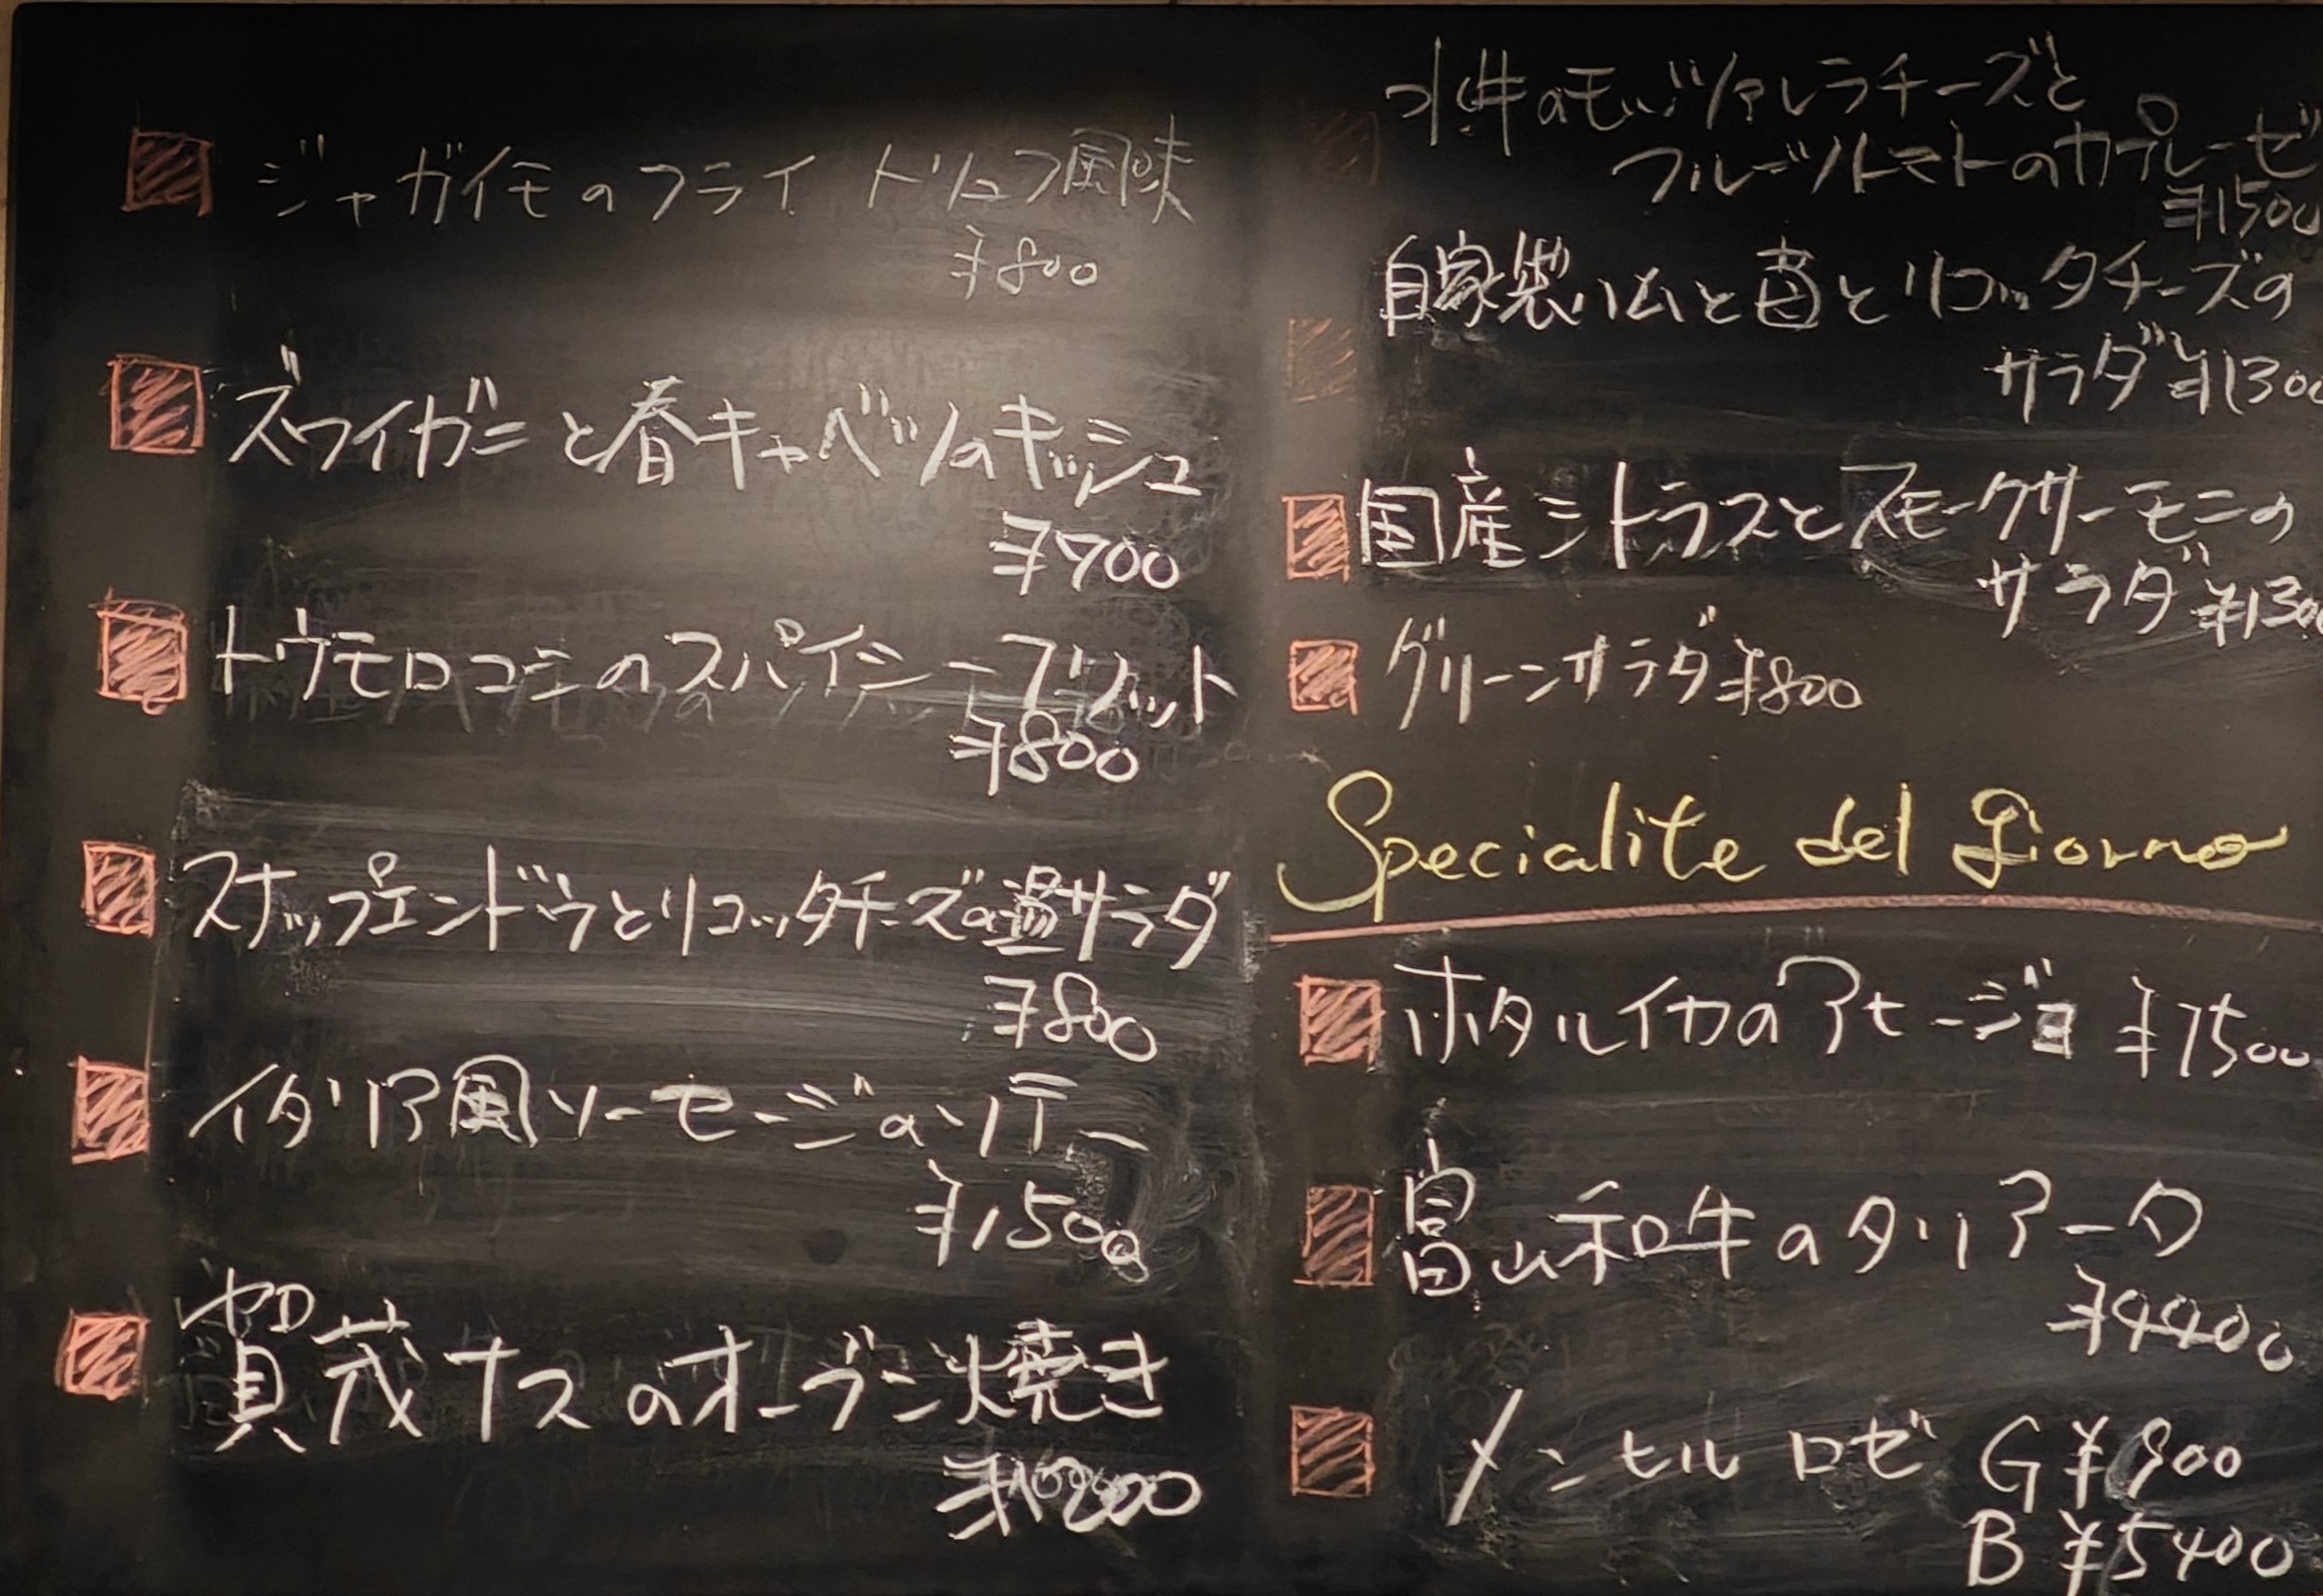 ジャガイモのフライ トリュフ風味
¥800
ズワイガニと春キャベツのキッシュ
¥700
トウモロコシのスパイシーフリット
¥800
スナップエンドウとリコッタチーズの温サラダ
¥800
イタリア風ソーセージのソテー
¥1500
賀茂ナスのオーブン焼き
水牛のモッツァレラチーズと
フルーツトマトのカプレーゼ
¥1500
自家製ハムと苺とリコッタチーズの
サラダ ¥1300
国産シトラスとスモークサーモンの
サラダ ¥1300
グリーンサラダ ¥800
Specialite del giorno
ホタルイカのアヒージョ ¥1500
富山和牛のタリアータ
¥4400
メンヒル ロゼ G ¥900
B ¥5400